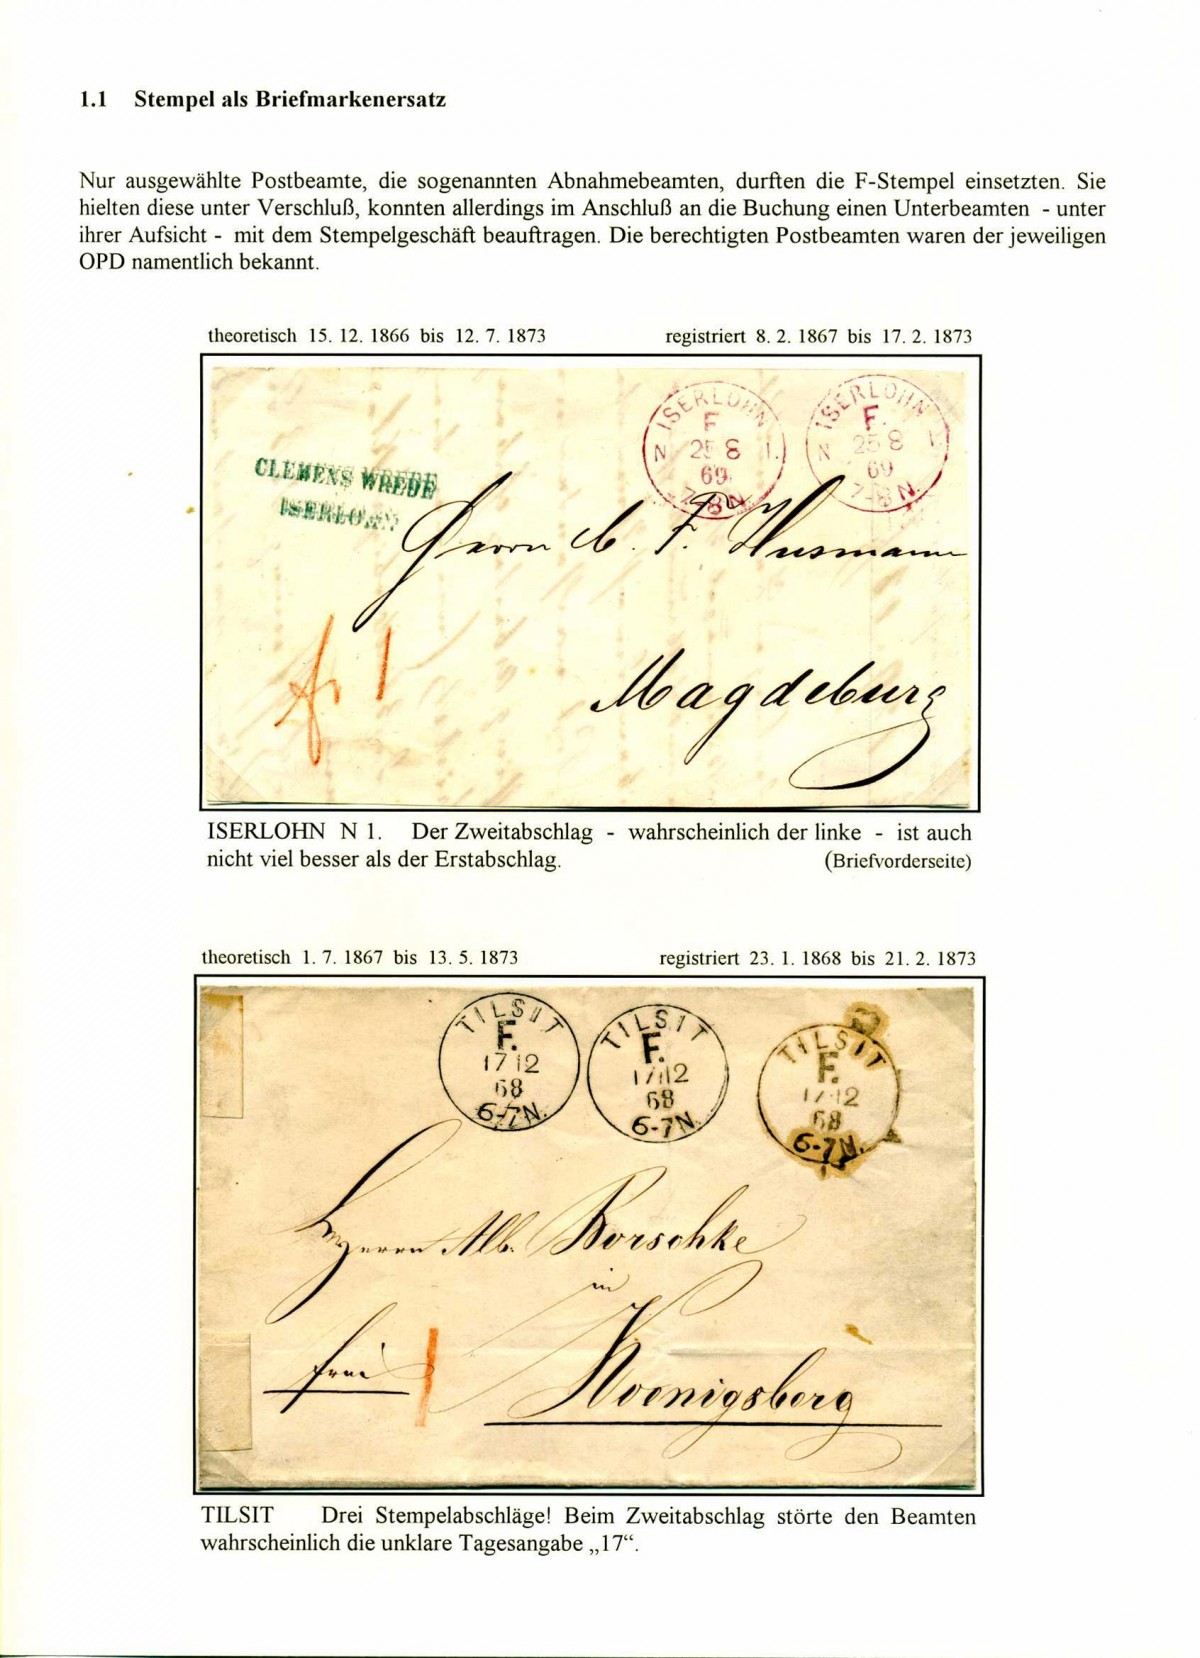 1.1 Stempel als Briefmarkenersatz
Nur ausgewählte Postbeamte, die sogenannten Abnahmebeamten, durften die F-Stempel einsetzten. Sie
hielten diese unter Verschluß, konnten allerdings im Anschluß an die Buchung einen Unterbeamten - unter
ihrer Aufsicht - mit dem Stempelgeschäft beauftragen. Die berechtigten Postbeamten waren der jeweiligen
OPD namentlich bekannt.
theoretisch 15. 12. 1866 bis 12. 7. 1873 registriert 8. 2. 1867 bis 17. 2. 1873
ISERLOHN
F
N 25 8 1.
69
7-8 N.
ISERLOHN
F.
N 25 8 1.
69
7-8 N.
CLEMENS WREDE
ISERLOHN
Herrn C. F. Husmann
1
Magdeburg
ISERLOHN N 1. Der Zweitabschlag - wahrscheinlich der linke - ist auch
nicht viel besser als der Erstabschlag. (Briefvorderseite)
theoretisch 1. 7. 1867 bis 13. 5. 1873 registriert 23. 1. 1868 bis 21. 2. 1873
TILSIT
F.
17 12
68
6-7N.
TILSIT
F.
17 12
68
6-7N.
TILSIT
F.
17 12
68
6-7N.
Herrn Alb. Borschke
in
frei
Koenigsberg
TILSIT Drei Stempelabschläge! Beim Zweitabschlag störte den Beamten
wahrscheinlich die unklare Tagesangabe „17“.